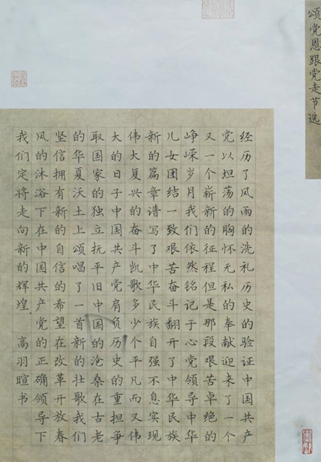 颂党恩跟党走节选
经历了风雨的洗礼历史的验证中国共产
党以坦荡的胸怀无私的奉献迎来了一个
又一个崭新的征程但是那段艰苦卓绝的
峥嵘岁月我们依然铭记于心党领导中华
儿女团结一致艰苦奋斗翻开了中华民族
新的篇章谱写了中华民族自强不息实现
伟大复兴的奋斗凯歌多少个平凡而又伟
大的日子中国共产党肩负历史的重担争
取国家的独立抚平旧中国的沧桑在古老
的华夏沃土上颂唱了一首新的壮歌我们
坚信拥有新的自信的希望在改革开放春
风的沐浴下在中国共产党的正确领导下
我们定将走向新的辉煌 高羽暄书